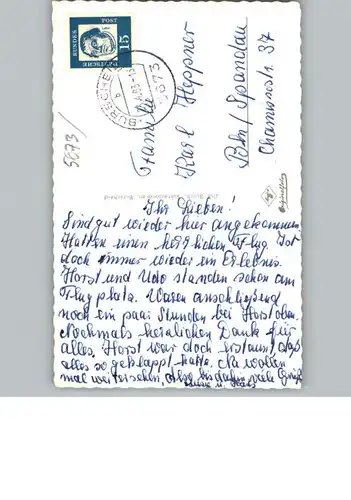 15
DEUTSCHE
BUNDES
POST
BURSCHEID
5673
5673/
Familie
Karl Heppner
Bln/Spandau
Chamissostr. 37
Ihr Lieben!
Sind gut wieder hier angekommen.
Hatten einen herrlichen Flug. Ist
doch immer wieder ein Erlebnis.
Horst und Udo standen schon am
Flugplatz. Waren anschließend
noch ein paar Stunden bei Horst oben.
Nochmals herzlichen Dank für
alles, Horst war doch erstaunt, daß
alles so geklappt hatte. Na wollen
mal weitersehen, Also bis dahin viele Grüße